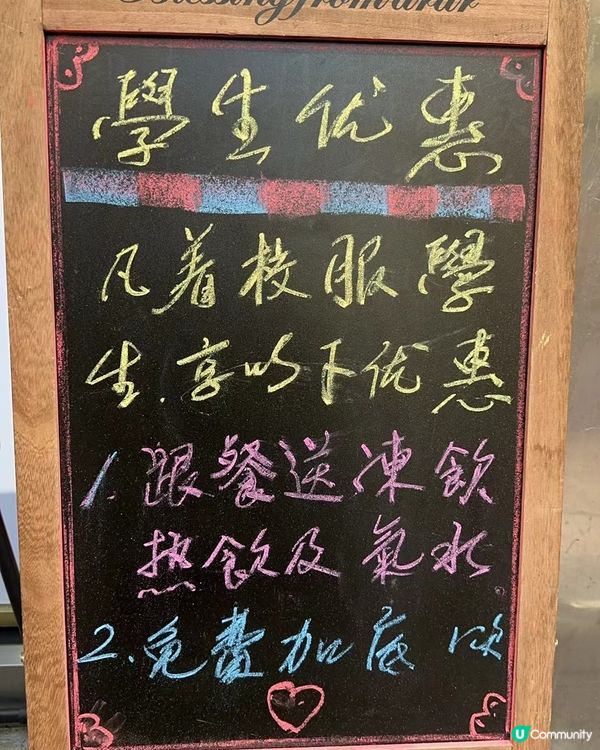 Blessing from afar
學生优惠
凡着校服學
生.享以下优惠
1.跟餐送凍飲
热飲及氣水
2.免費加底
U Community